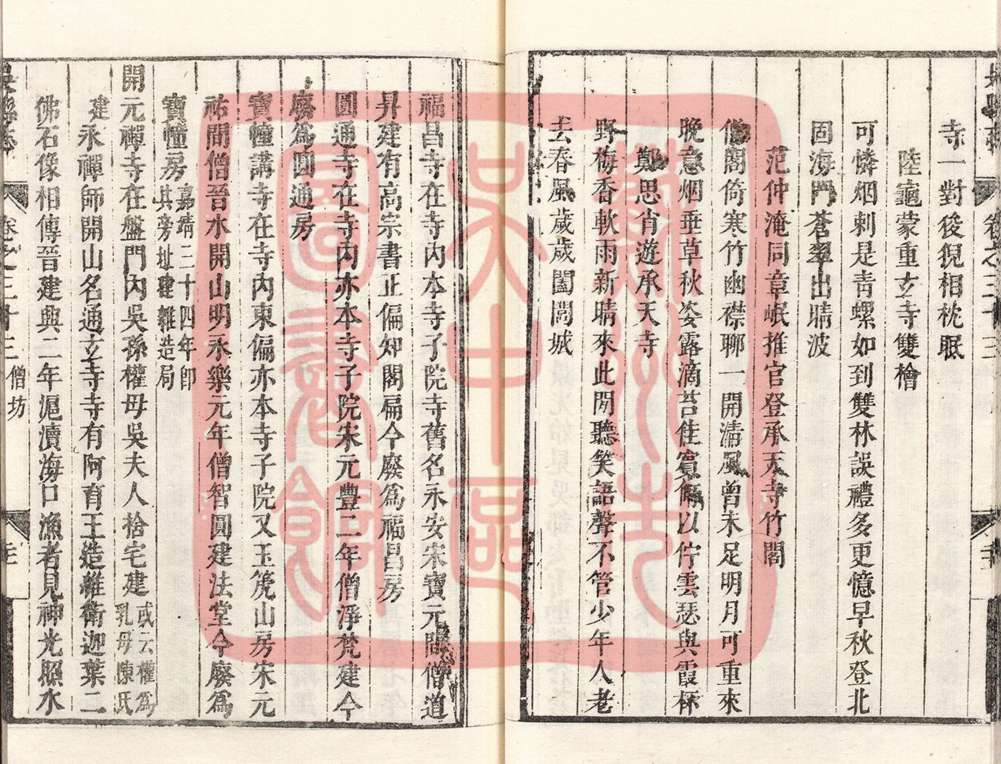 寺一對後猊相枕眠
陸龜蒙重玄寺雙檜
可憐烟刺是青螺如到雙林誤禮多更憶早秋登北
固海門蒼翠出晴波
范仲淹同章岷推官登承天寺竹閣
僧閣倚寒竹幽襟聊一開清風曾未足明月可重來
晚意烟垂草秋姿露滴苔佳賓以佇雲瑟與霞杯
鄭思肖遊承天寺
野梅香軟雨新晴來此閒聽笑語聲不管少年人老
去春風歲歲闔閭城
福昌寺在寺內本寺子院寺舊名永安宋寶元間僧道
昇建有高宗書正偏知閣扁今廢爲福昌房
圓通寺在寺內亦本寺子院宋元豐二年僧淨梵建今
廢爲圓通房
寶幢講寺在寺內東偏亦本寺子院又玉筦山房宋元
祐間僧晉水開山明永樂元年僧智圓建法堂今廢爲
寶幢房嘉靖三十四年即
其旁址建雜造局
開元禪寺在盤門內吳孫權母吳夫人捨宅建或云權爲
乳母陳氏
建永禪師開山名通玄寺寺有阿育王造維衛迦葉二
佛石像相傳晉建興二年滬瀆海口漁者見神光照水
吳縣志
卷之三十三
僧坊